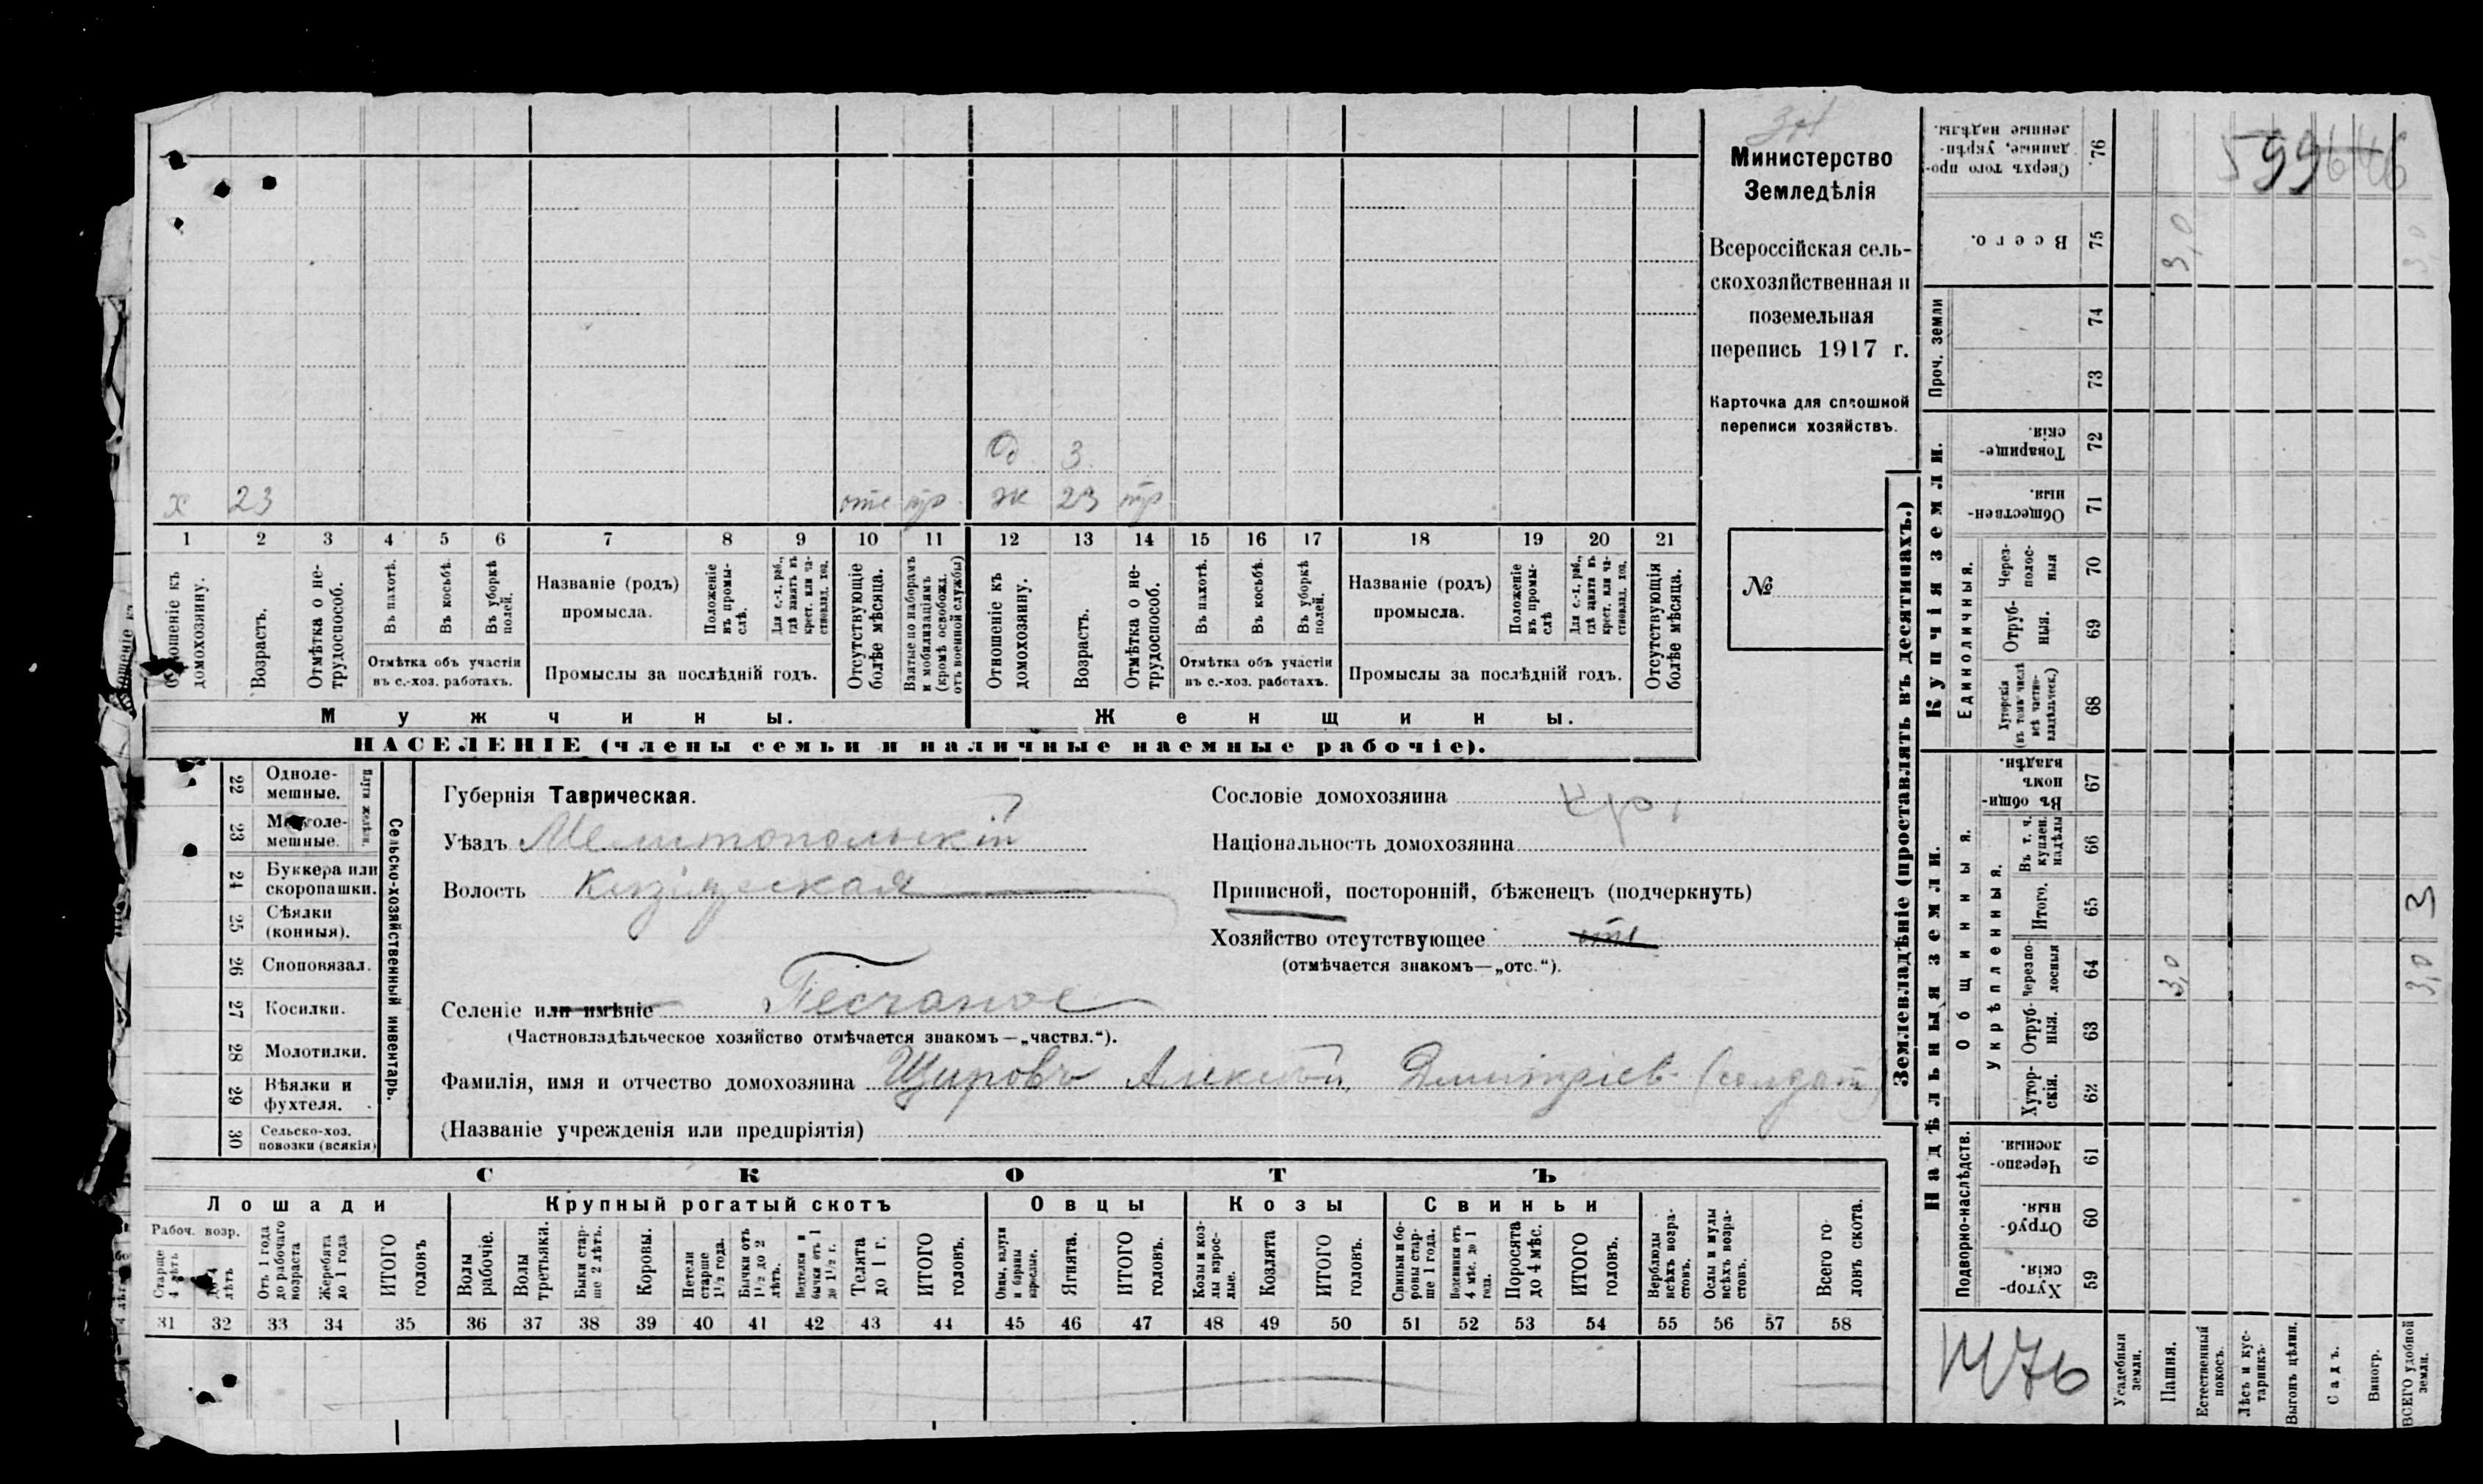 Министерство
Земледѣлія
Всероссійская сель-
скохозяйственная и
поземельная
перепись 1917 г.
Карточка для сплошной
переписи хозяйствъ.
№
599
О. 3
х 23 отс тр. ж 23 тр
1 2 3 4 5 6 7 8 9 10 11 12 13 14 15 16 17 18 19 20 21
Отношеніе къ домохозяину.
Возрастъ.
Отмѣтка о не-трудоспособ.
Въ пахотѣ.
Въ косьбѣ.
Въ уборкѣ полей.
Отмѣтка объ участіи
въ с.-хоз. работахъ.
Названіе (родъ)
промысла.
Положеніе въ промы-слѣ.
Для с.-х. раб., гдѣ занятъ въ крест. или ча-стновлад. хоз.
Промыслы за послѣдній годъ.
Отсутствующіе болѣе мѣсяца.
Взятые по наборамъ и мобилизаціямъ (кромѣ освобожд. отъ военной службы)
Отношеніе къ домохозяину.
Возрастъ.
Отмѣтка о не-трудоспособ.
Въ пахотѣ.
Въ косьбѣ.
Въ уборкѣ полей.
Отмѣтка объ участіи
въ с.-хоз. работахъ.
Названіе (родъ)
промысла.
Положеніе въ промы-слѣ
Для с.-х. раб., гдѣ занята въ крест. или ча-стновлад. хоз.
Промыслы за послѣдній годъ.
Отсутствующія болѣе мѣсяца.
Мужчины.
Женщины.
НАСЕЛЕНІЕ (члены семьи и наличные наемные рабочіе).
Сельско-хозяйственный инвентарь.
Плуги желѣзн.
22 Одноле-мешные.
23 Многоле-мешные.
24 Буккера или скоропашки.
25 Сѣялки (конныя).
26 Сноповязал.
27 Косилки.
28 Молотилки.
29 Вѣялки и фухтеля.
30 Сельско-хоз. повозки (всякія)
Губернія Таврическая.
Уѣздъ Мелитопольскій
Волость
Сословіе домохозяина кр.
Національность домохозяина
Приписной, посторонній, бѣженецъ (подчеркнуть)
Хозяйство отсутствующее отс
(отмѣчается знакомъ—„отс.“).
Селеніе или имѣніе Песчаное
(Частновладѣльческое хозяйство отмѣчается знакомъ—„частвл.“).
Фамилія, имя и отчество домохозяина Щировъ Алексѣй Дмитріев. (солдат)
(Названіе учрежденія или предпріятія)
СКОТЪ
Лошади Крупный рогатый скотъ Овцы Козы Свиньи
Рабоч. возр.
Старше 4 лѣтъ
До 4 лѣтъ
Отъ 1 года до рабочаго возраста
Жеребята до 1 года
ИТОГО головъ
Волы рабочіе.
Волы третьяки.
Быки стар-ше 2 лѣтъ.
Коровы.
Нетели старше 1½ года.
Бычки отъ 1½ до 2 лѣтъ.
Подтелки и бычки отъ 1 до 1½ г.
Телята до 1 г.
ИТОГО головъ.
Овцы, валухи и бараны взрослые.
Ягнята.
ИТОГО головъ.
Козы и коз-лы взрос-лые.
Козлята
ИТОГО головъ.
Свиньи и бо-ровы стар-ше 1 года.
Подсвинки отъ 4 мѣс. до 1 года.
Поросята до 4 мѣс.
ИТОГО головъ.
Верблюды всѣхъ возра-стовъ.
Ослы и мулы всѣхъ возра-стовъ.
Всего го-ловъ скота.
31 32 33 34 35 36 37 38 39 40 41 42 43 44 45 46 47 48 49 50 51 52 53 54 55 56 57 58
Землевладѣніе (проставлять въ десятинахъ.)
Надѣльныя земли.
Купчія земли.
Проч. земли
Подворно-наслѣдств.
Общинныя.
Укрѣпленныя.
Единоличныя.
76 Сверхъ того про-данные, укрѣп-ленные надѣлы.
75 Всего. 3,0 3,0
74
73
72 Товарище-скія.
71 Обществен-ныя.
70 Через-полос-ныя
69 Отруб-ныя.
68 Хуторскія (въ томъ числѣ всѣ частно-владѣльческ.)
67 Въ общи-номъ владѣн.
66 Въ т. ч. куплен. надѣлы
65 Итого. 3
64 Черезпо-лосныя 3,0 3,0
63 Отруб-ныя.
62 Хутор-скія.
61 Черезпо-лосныя.
60 Отруб-ныя.
59 Хутор-скія.
Усадебныя земли.
Пашня.
Естественный покосъ.
Лѣсъ и кус-тарникъ.
Выгонъ цѣлин.
Садъ.
Виногр.
ВСЕГО удобной земли.